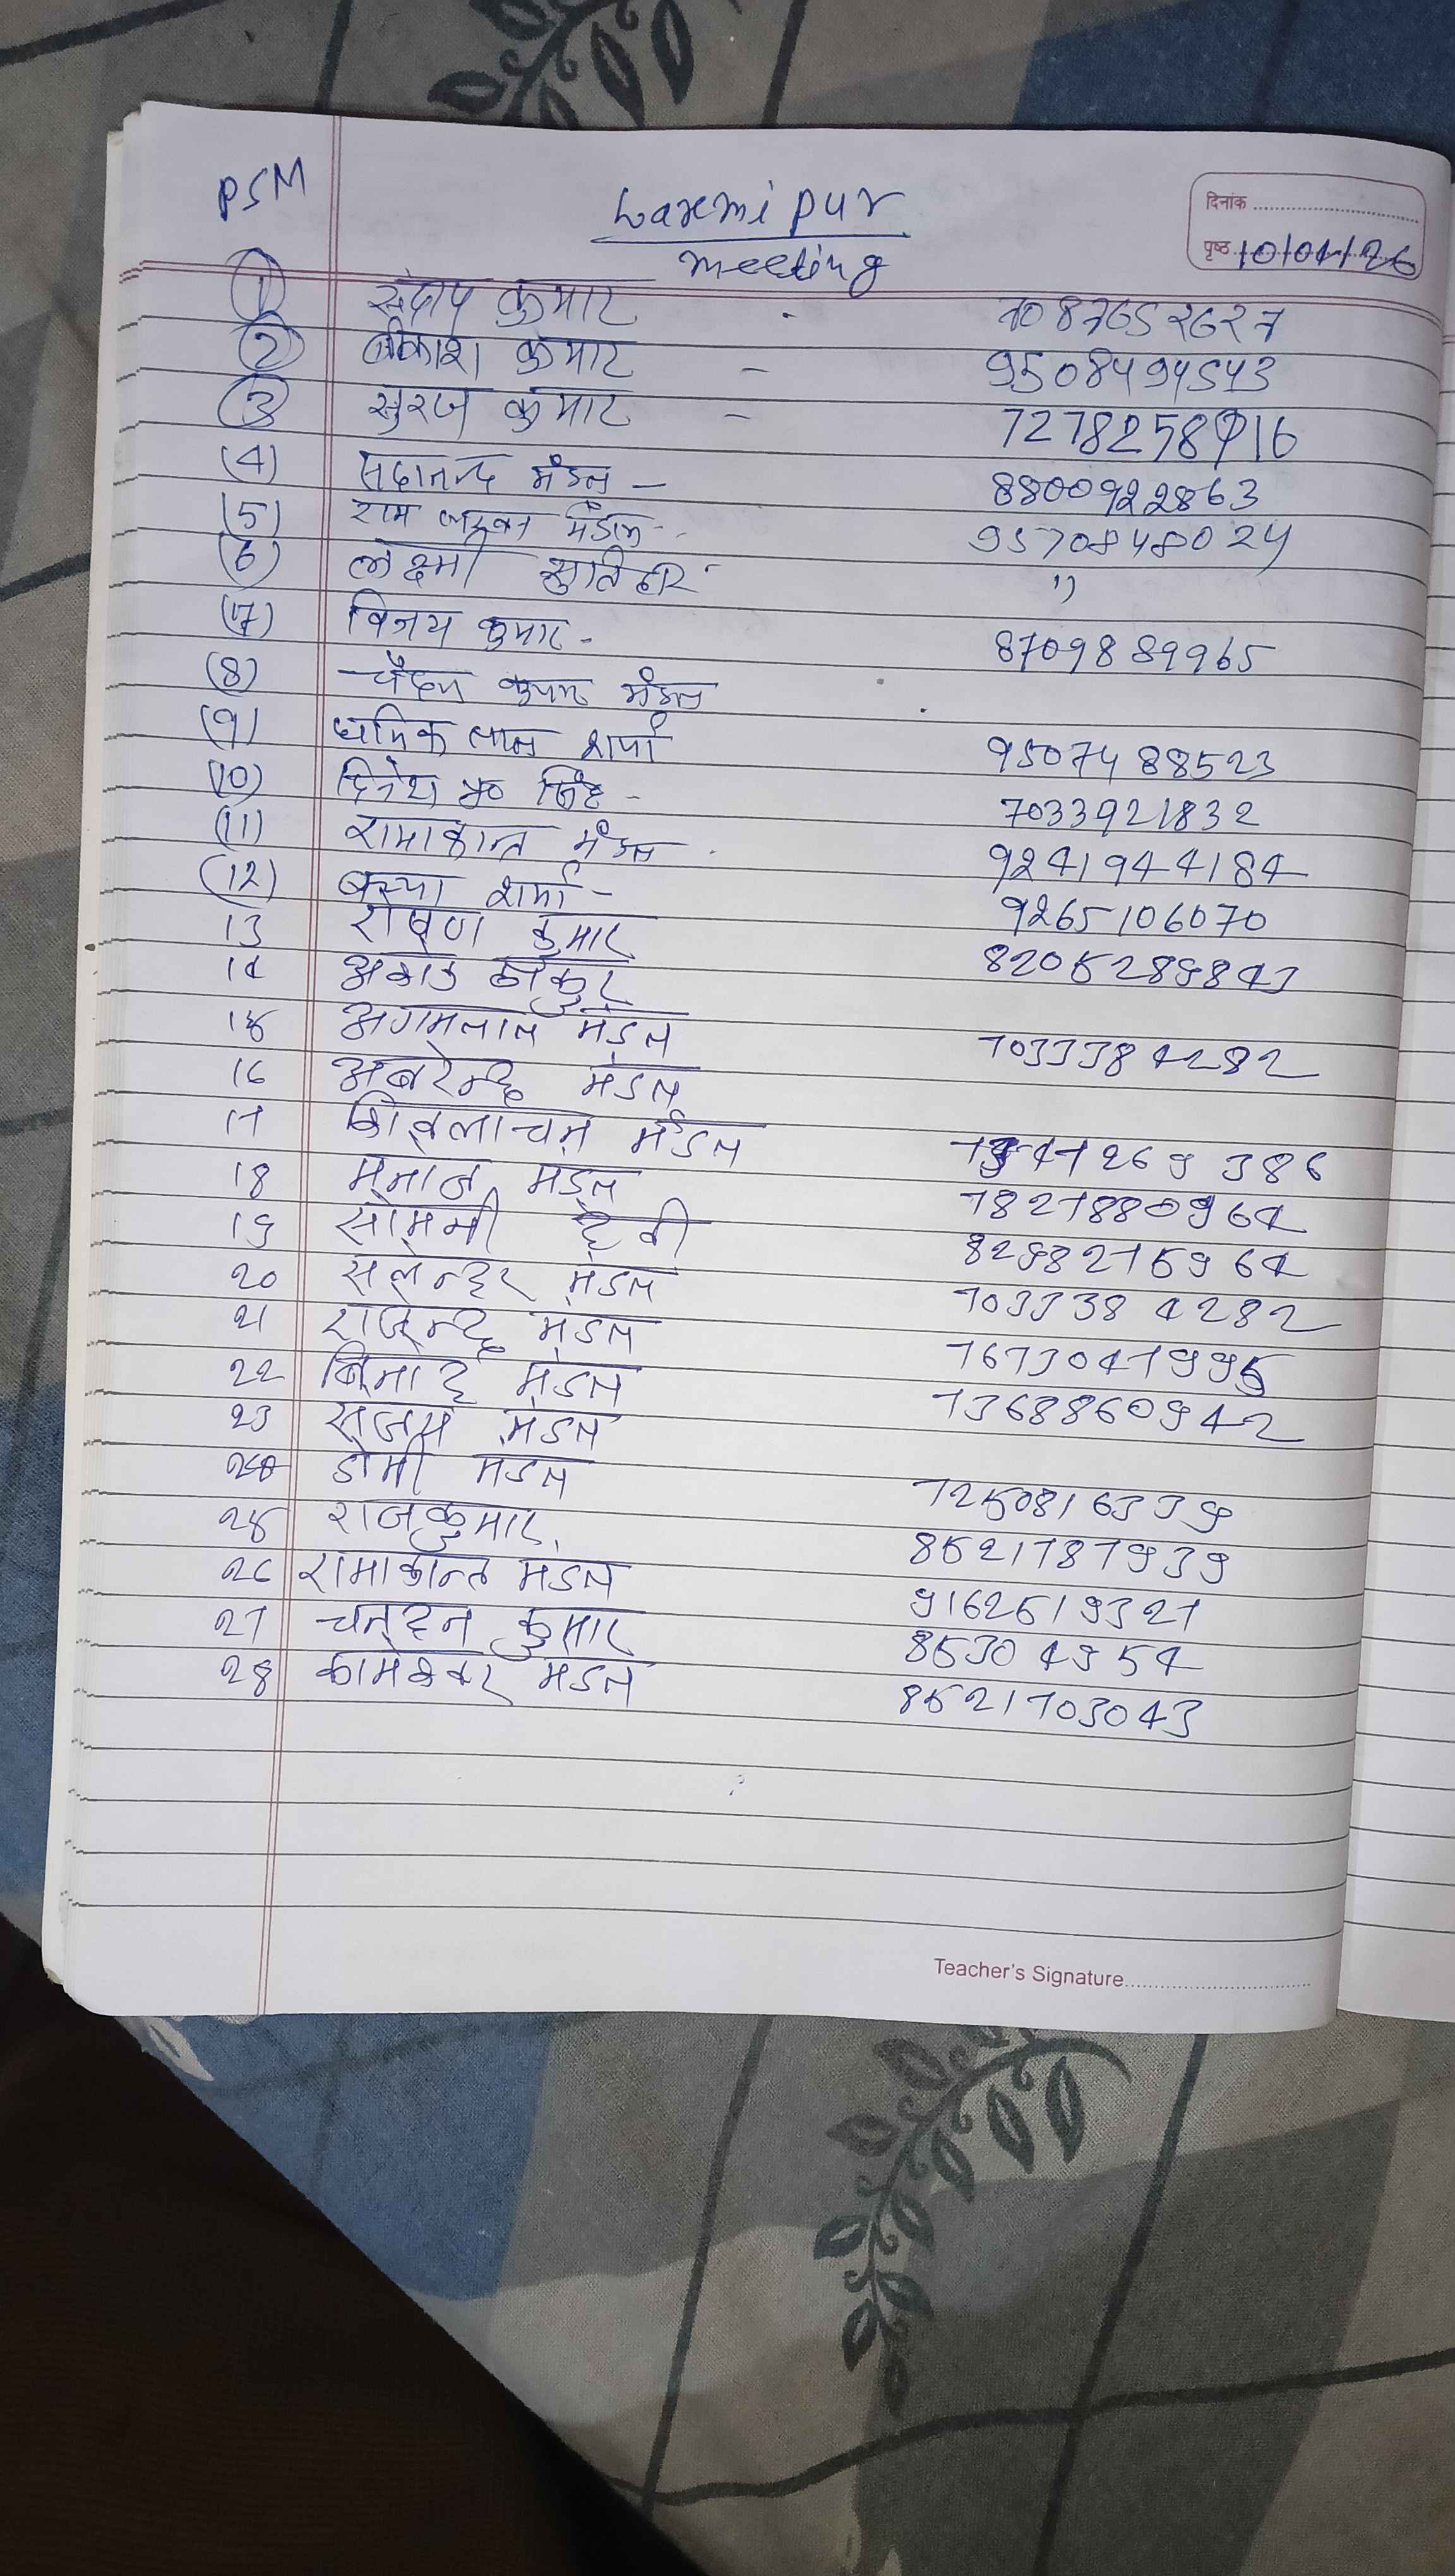 PSM
Laxmi pur
meeting
दिनांक
पृष्ठ 10/01/26
(1) संदीप कुमार - 7087652627
(2) बीकाश कुमार - 9508494543
(3) सुरज कुमार - 7278258916
(4) सदानन्द मंडल - 8800922863
(5) राम मंडल - 9570848024
(6) लक्ष्मी "
(7) विजय कुमार - 8709889965
(8) चंदन कुमार मंडल
(9) धनिक लाल शर्मा 9507488523
(10) दिनेश कु० सिंह - 7033921832
(11) रामाकान्त मंडल - 9241944184
(12) शर्मा - 9265106070
13 रोषण कुमार 8205289843
14 ठाकुर
15 अगमलाल मंडल 7033384282
16 मंडल
17 शिवलाचन मंडल 269386
18 मनोज मंडल 7827880964
19 सोमनी देवी 8298276964
20 सलेन्दर मंडल 7033384282
21 राजेन्द्र मंडल 7673047995
22 बिनोद मंडल 7368860942
23 संजय मंडल
24 डोमी मंडल 7250816339
25 राजकुमार 8521787939
26 रामाकान्त मंडल 9162619327
27 चन्दन कुमार 85304954
28 कामेश्वर मंडल 8521703043
Teacher's Signature